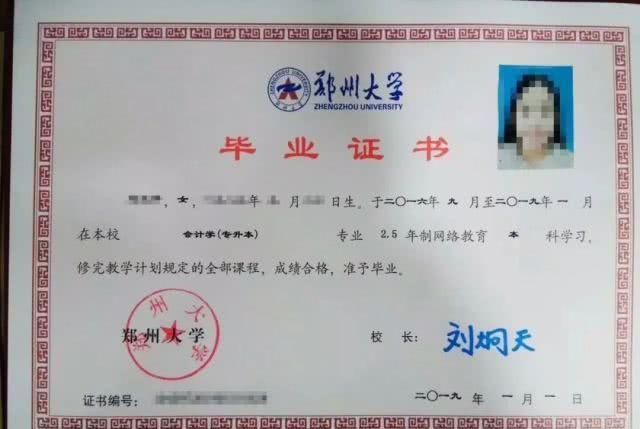 郑州大学
ZHENGZHOU UNIVERSITY
毕业证书
，女，年 月 日生。于二〇一六年 九 月至二〇一九年 一 月
在本校 会计学(专升本) 专业 2.5 年制网络教育 本 科学习，
修完教学计划规定的全部课程，成绩合格，准予毕业。
郑州大学
郑州大学 校 长： 刘炯天
证书编号：
二〇一九 年 一 月 一 日